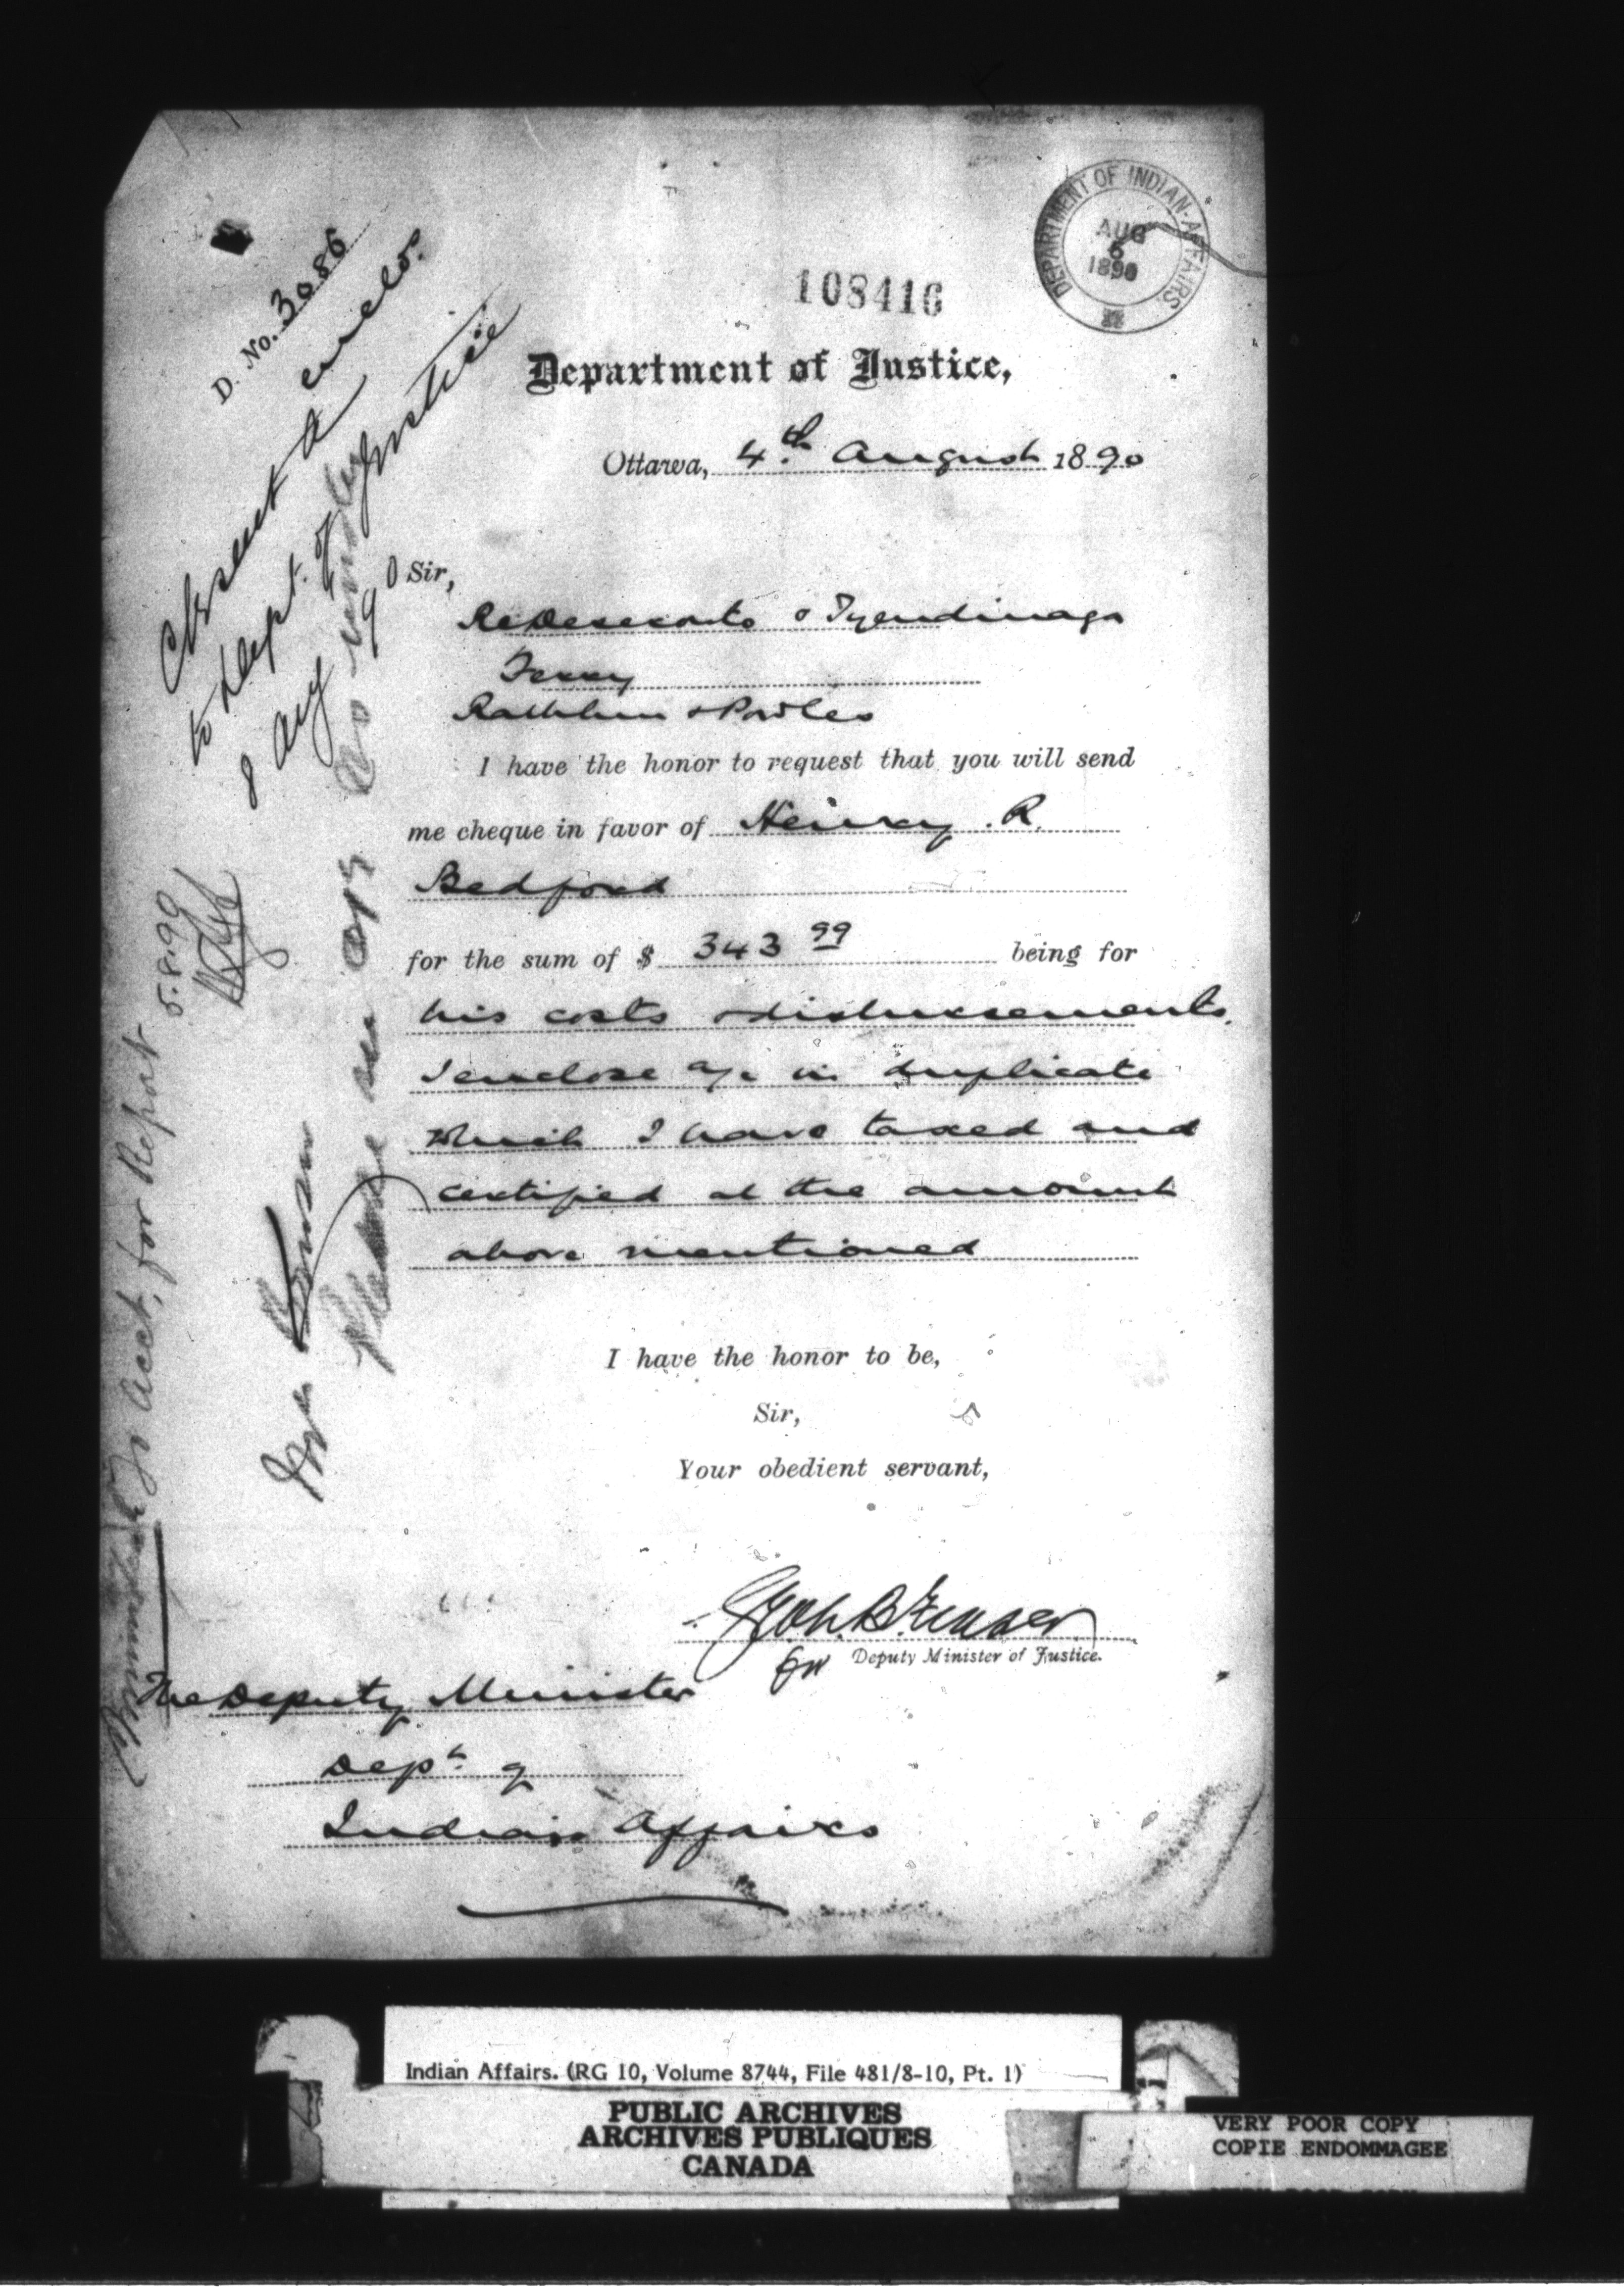 DEPARTMENT OF INDIAN-AFFAIRS.
AUG
6
1890
108416
D. No. 3086
Department of Justice,
Ottawa, 4th August 1890
Sir,
Re Deseronto & Tyendinaga
Ferry
Rathbun & Powles
I have the honor to request that you will send
me cheque in favor of Henry. R.
Bedford
for the sum of $ 343 99 being for
his costs & disbursements.
I enclose a/c in duplicate
which I have taxed and
certified at the amount
above mentioned
I have the honor to be,
Sir,
Your obedient servant,
for Deputy Minister of Justice.
The Deputy Minister
Dept. of
Indian Affairs
to Dept. of Justice
8 Aug 90
To Acct, for Report
5.8.90
Mr
Please
Indian Affairs. (RG 10, Volume 8744, File 481/8-10, Pt. 1)
PUBLIC ARCHIVES
ARCHIVES PUBLIQUES
CANADA
VERY POOR COPY
COPIE ENDOMMAGEE